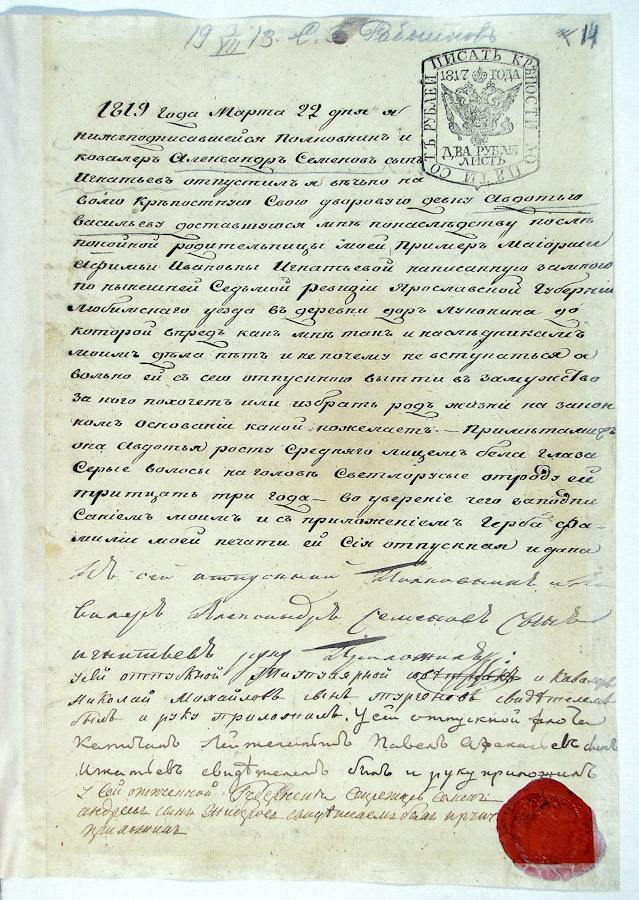 19 3/VII 13. С.
14
ПИСАТЬ КРѢПОСТИ ДО ПЯТИ СОТЪ РУБЛЕЙ
1817 ГОДА
ДВА РУБЛЯ
ЛИСТЪ
1819 Года Марта 22 дня я
нижеподписавшейся Полковник и
ковалеръ Александръ Семеновъ сынъ
Игнатьевъ отпустилъ я вѣчно на
волю крѣпостную Свою дворовую девку Авдотью
васильеву доставшуюся мнѣ понаслѣдству послѣ
покойной родительницы моей Примеръ Маіорши
Афимьи Ивановны Игнатьевой написанную замною
по нынешней Седьмой ревизіи Ярославской Губерніи
любимскаго уезда в деревни дор Лунокина до
которой впредь какъ мнѣ такъ и наслѣдникамъ
моимъ дѣла нѣтъ и непочему не вступаться а
вольно ей съ сею отпускною вытти в замужство
за кого похочетъ или избрать родъ жизни на закон
номъ основаніи какой пожелаетъ. — Примѣтамиж
она Авдотья росту Средняго лицемъ бела глаза
Серые волосы на головѣ Светлорусые отроду ей
тритцать три года — во уверение чего заподпи
Саніемъ моимъ и съ приложеніемъ Герба фа-
миліи моей печати ей Сія отпускная и дана
Къ сей отпускной Полковникъ и Ка
валеръ Александръ Семеновъ Сынъ
игнатьевъ руку Приложилъ
Усей отпускной Титулярной советникъ и Кавалеръ
николай Михайловъ сынъ тургеновъ свидѣтелемъ
былъ и руку приложилъ. Усей отпускной флота
Капитанъ Лейтенантъ Павелъ Афанасьевъ сынъ
Игнатьевъ свидѣтелемъ былъ и руку приложилъ
У сей отпускной Губернский Секретарь Семенъ
андреевъ сынъ свидетелемъ былъ и руку
приложилъ